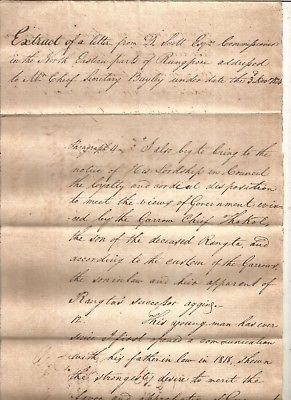 Extract of a letter from D. Scott Esqr. Commissioner
in the North Eastern parts of Rungpore addressed
to Mr. Chief Secretary Bayley under date the 3
Paragraph 4. "I also beg to bring to the
notice of His Lordship in Council
the loyalty and cordial disposition
to meet the views of Government evin-
ced by the Garrow Chief
the son of the deceased Rangta, and
according to the custom of the Garrows
the son in law and heir apparent of
Rangta's successor
This young man has ever
since I first opened a communication
with his father in law in 1818, shewn
the strongest desire to merit the